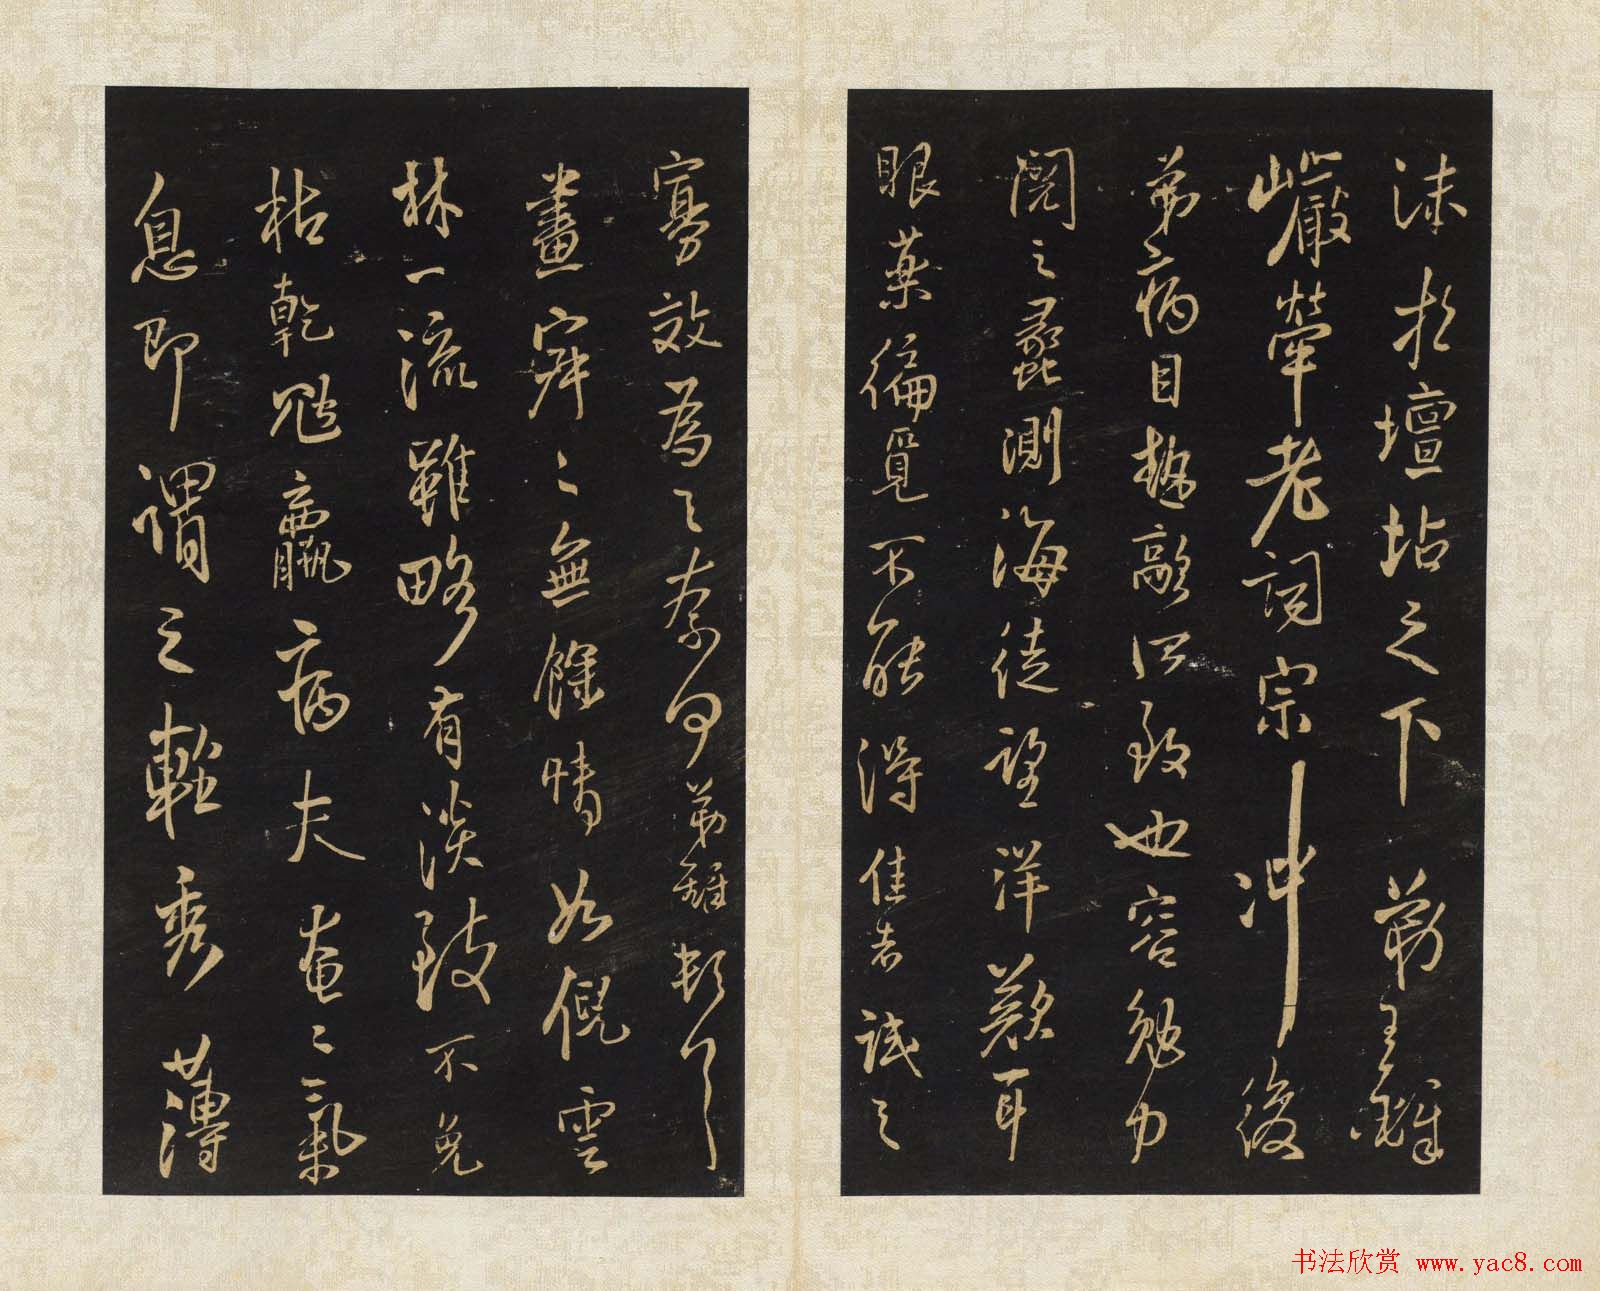 沫於壇坫之下 弟
巖犖老詞宗 冲後
弟病目 敲 致也容勉力
閱之蠡測海徒望洋歎耳
眼藥徧覓不能得佳者誠之
寡效為之奈何弟
畫 之無餘情如倪雲
林一流雖略有淡致不免
枯乾尫羸病夫奄奄氣
息即謂之輕秀薄
书法欣赏 www.yac8.com